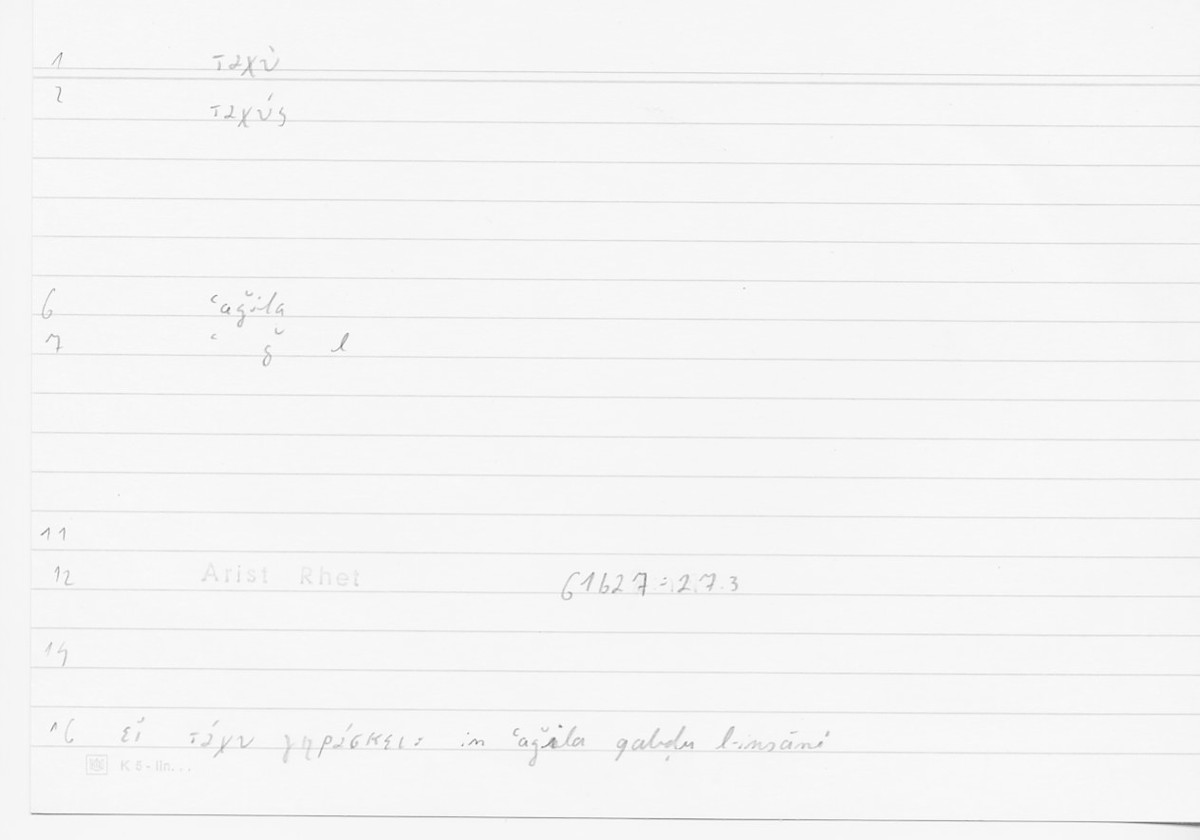 1 ταχὺ
2 ταχύς
6 ʿaǧila
7 ʿ ǧ l
11
12 Arist Rhet 61b27 = 2.7.3
14
16 εἰ τάχυ γηράσκει: in ʿaǧila qabḍu l-insāni